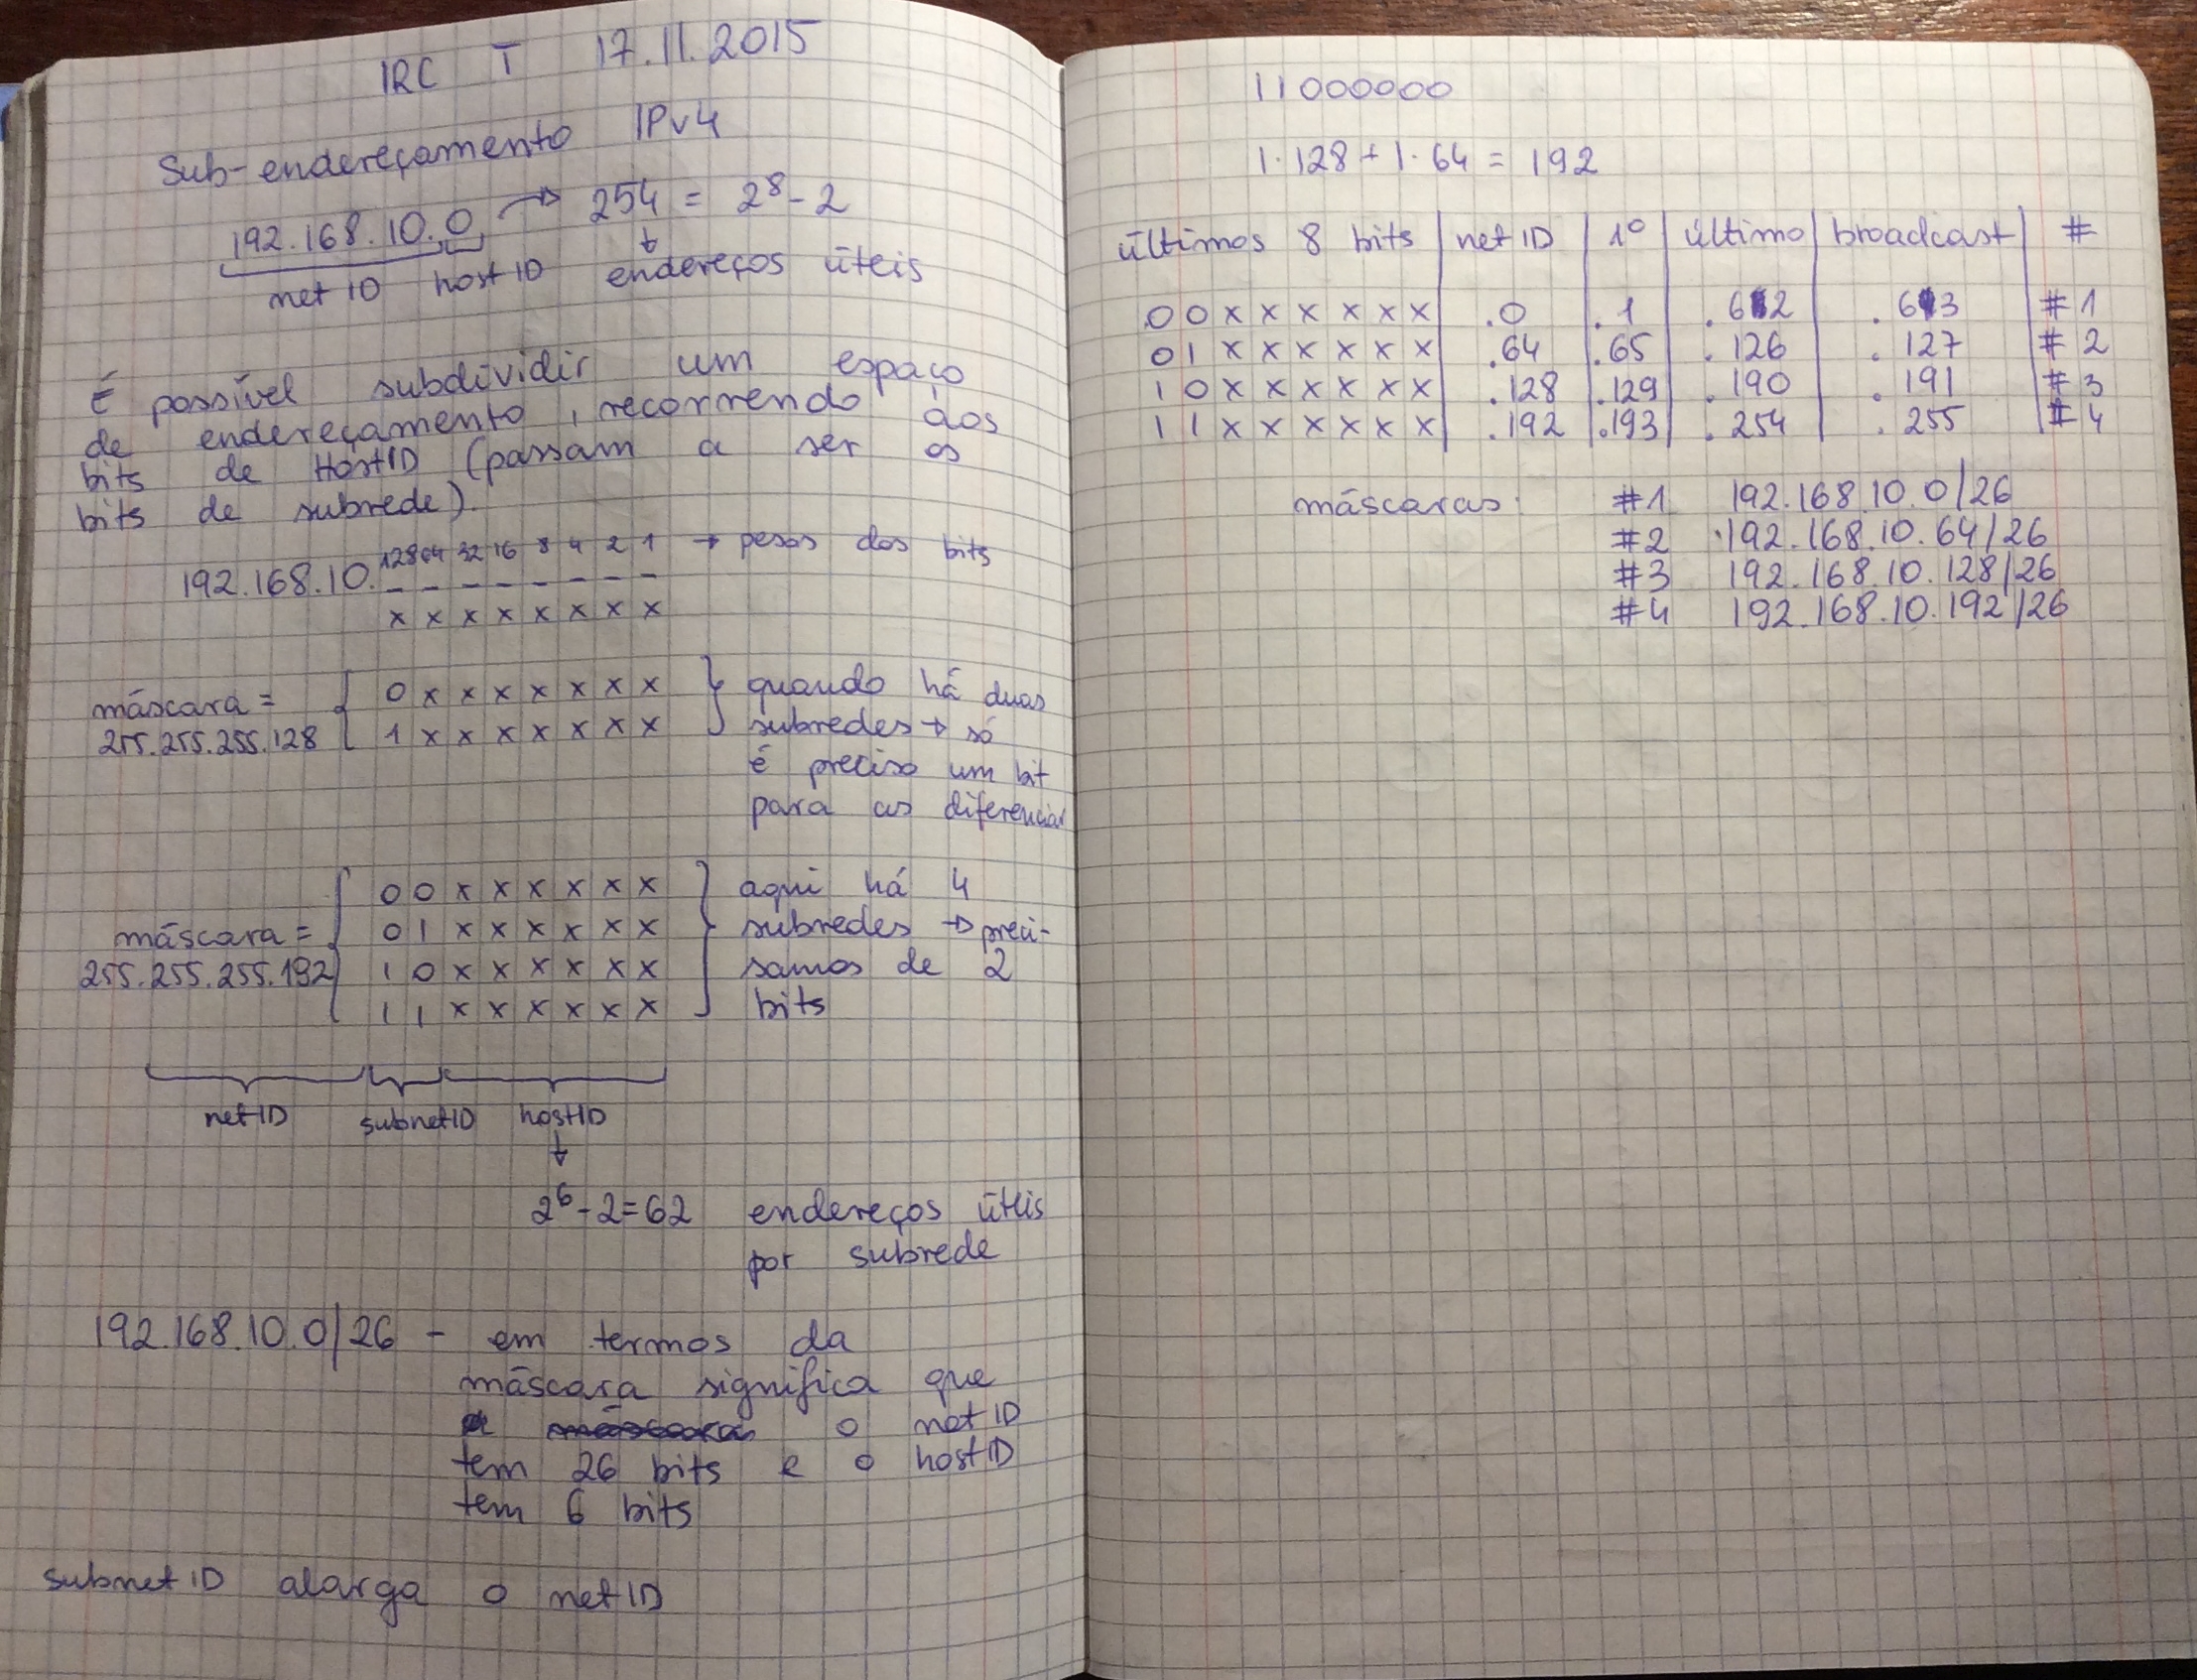 IRC T 17.11.2015
Sub-endereçamento IPv4
192.168.10.0 → 254 = 2⁸ - 2
net ID host ID endereços úteis
É possível subdividir um espaço
de endereçamento, recorrendo aos
bits de HostID (passam a ser os
bits de subrede).
128 64 32 16 8 4 2 1 → pesos dos bits
192.168.10. _ _ _ _ _ _ _ _
x x x x x x x x
máscara = 0 x x x x x x x quando há duas
255.255.255.128 1 x x x x x x x subredes → só
é preciso um bit
para as diferenciar
0 0 x x x x x x aqui há 4
máscara = 0 1 x x x x x x subredes → preci-
255.255.255.192 1 0 x x x x x x samos de 2
1 1 x x x x x x bits
netID subnetID hostID
↓
2⁶ - 2 = 62 endereços úteis
por subrede
192.168.10.0/26 - em termos da
máscara significa que
a máscara o net ID
tem 26 bits e o hostID
tem 6 bits
subnet ID alarga o net ID
11000000
1·128 + 1·64 = 192
últimos 8 bits | net ID | 1º | último | broadcast | #
0 0 x x x x x x | .0 | .1 | .62 | .63 | #1
0 1 x x x x x x | .64 | .65 | .126 | .127 | #2
1 0 x x x x x x | .128 | .129 | .190 | .191 | #3
1 1 x x x x x x | .192 | .193 | .254 | .255 | #4
máscaras: #1 192.168.10.0/26
#2 192.168.10.64/26
#3 192.168.10.128/26
#4 192.168.10.192/26